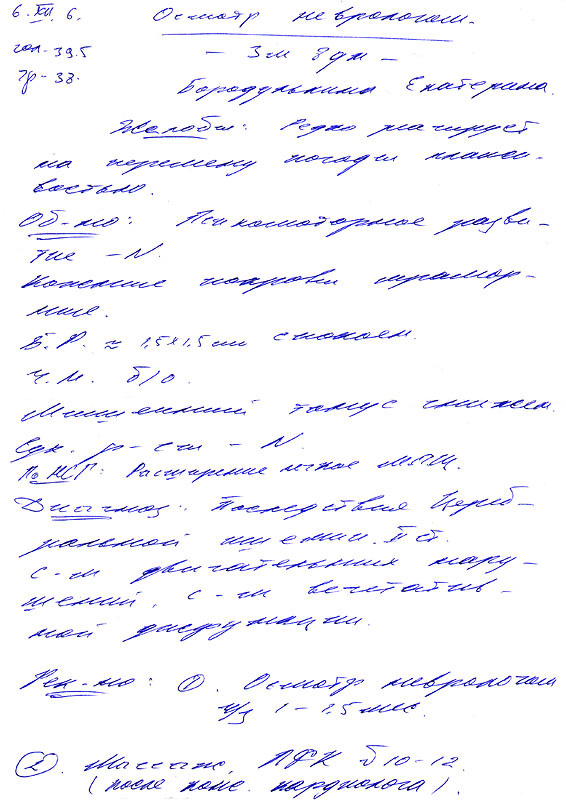 6. XII. 6. Осмотр неврологом.
гол - 39.5 - 3м 8дн -
гр - 38.
Бородулькина Екатерина.
Жалобы: Редко реагирует
на перемену погоды плакси-
востью.
Об-но: Психомоторное разви-
тие - N.
Кожные покровы мрамор-
ные.
Б.Р. ≈ 1,5x1,5 см спокоен.
Ч.М. б/о.
Мышечный тонус снижен.
Сух. р-сы - N.
По НСГ: Расширение легкое МПЩ.
Диагноз: Последствия Цереб-
ральной ишемии II ст.
с-м двигательных нару-
шений, с-м вегетатив-
ной дисфункции.
Рек-но: ①. Осмотр неврологом
ч/з 1 - 1.5 мес.
②. Массаж, ЛФК №10-12.
(после конс. кардиолога).